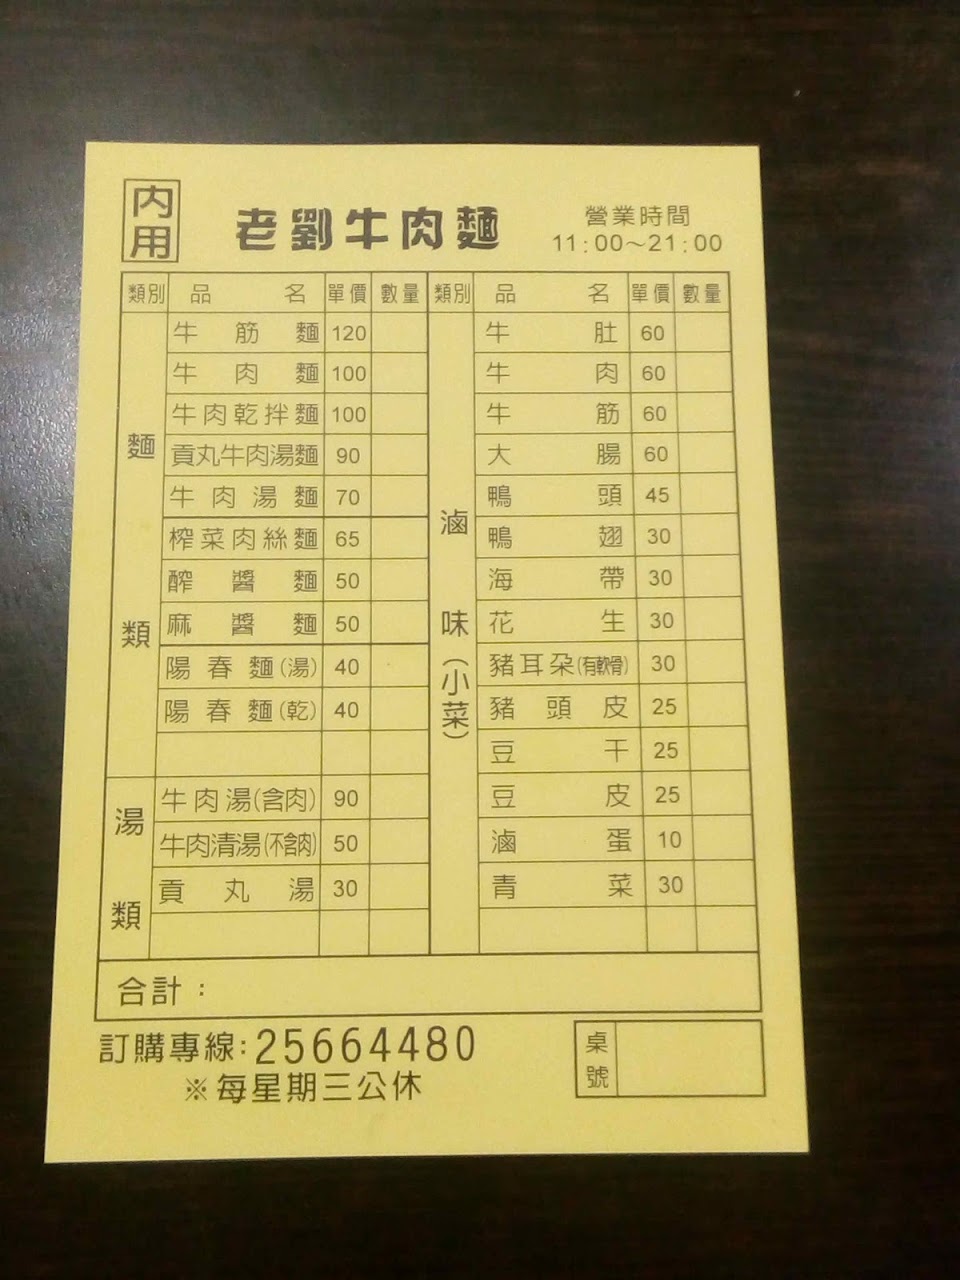 內用
老劉牛肉麵
營業時間
11:00～21:00
類別 品名 單價 數量 類別 品名 單價 數量
麵類
牛筋麵 120
牛肉麵 100
牛肉乾拌麵 100
貢丸牛肉湯麵 90
牛肉湯麵 70
榨菜肉絲麵 65
醡醬麵 50
麻醬麵 50
陽春麵(湯) 40
陽春麵(乾) 40
湯類
牛肉湯(含肉) 90
牛肉清湯(不含肉) 50
貢丸湯 30
滷味(小菜)
牛肚 60
牛肉 60
牛筋 60
大腸 60
鴨頭 45
鴨翅 30
海帶 30
花生 30
豬耳朵(有軟骨) 30
豬頭皮 25
豆干 25
豆皮 25
滷蛋 10
青菜 30
合計：
訂購專線:25664480
※每星期三公休
桌號